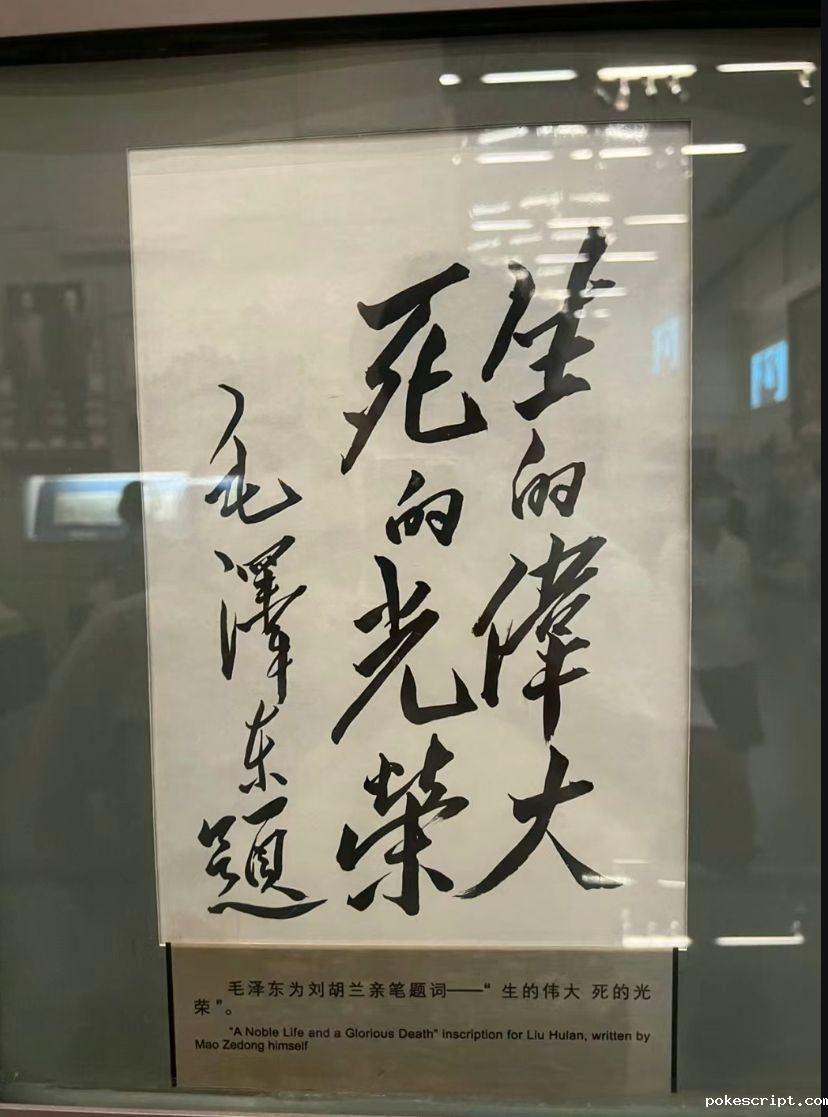 生的偉大
死的光榮
毛澤东題
毛泽东为刘胡兰亲笔题词——“生的伟大 死的光
荣”。
“A Noble Life and a Glorious Death” inscription for Liu Hulan, written by
Mao Zedong himself
pokescript.com